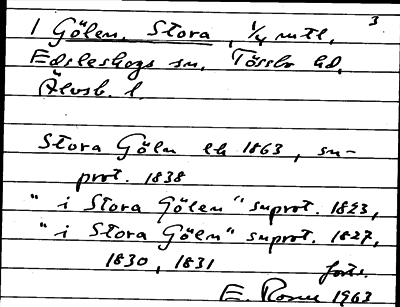 3
1 Gölen, Stora, 1/4 mtl,
Edsleskogs sn, Tössbo hd,
Älvsb. l.
Stora Göln lk 1863, sn-
prot. 1838
"i Stora Gölen" snprot. 1823,
"i Stora Göln" snprot. 1827,
1830, 1831
forts.
E. Rosén 1963